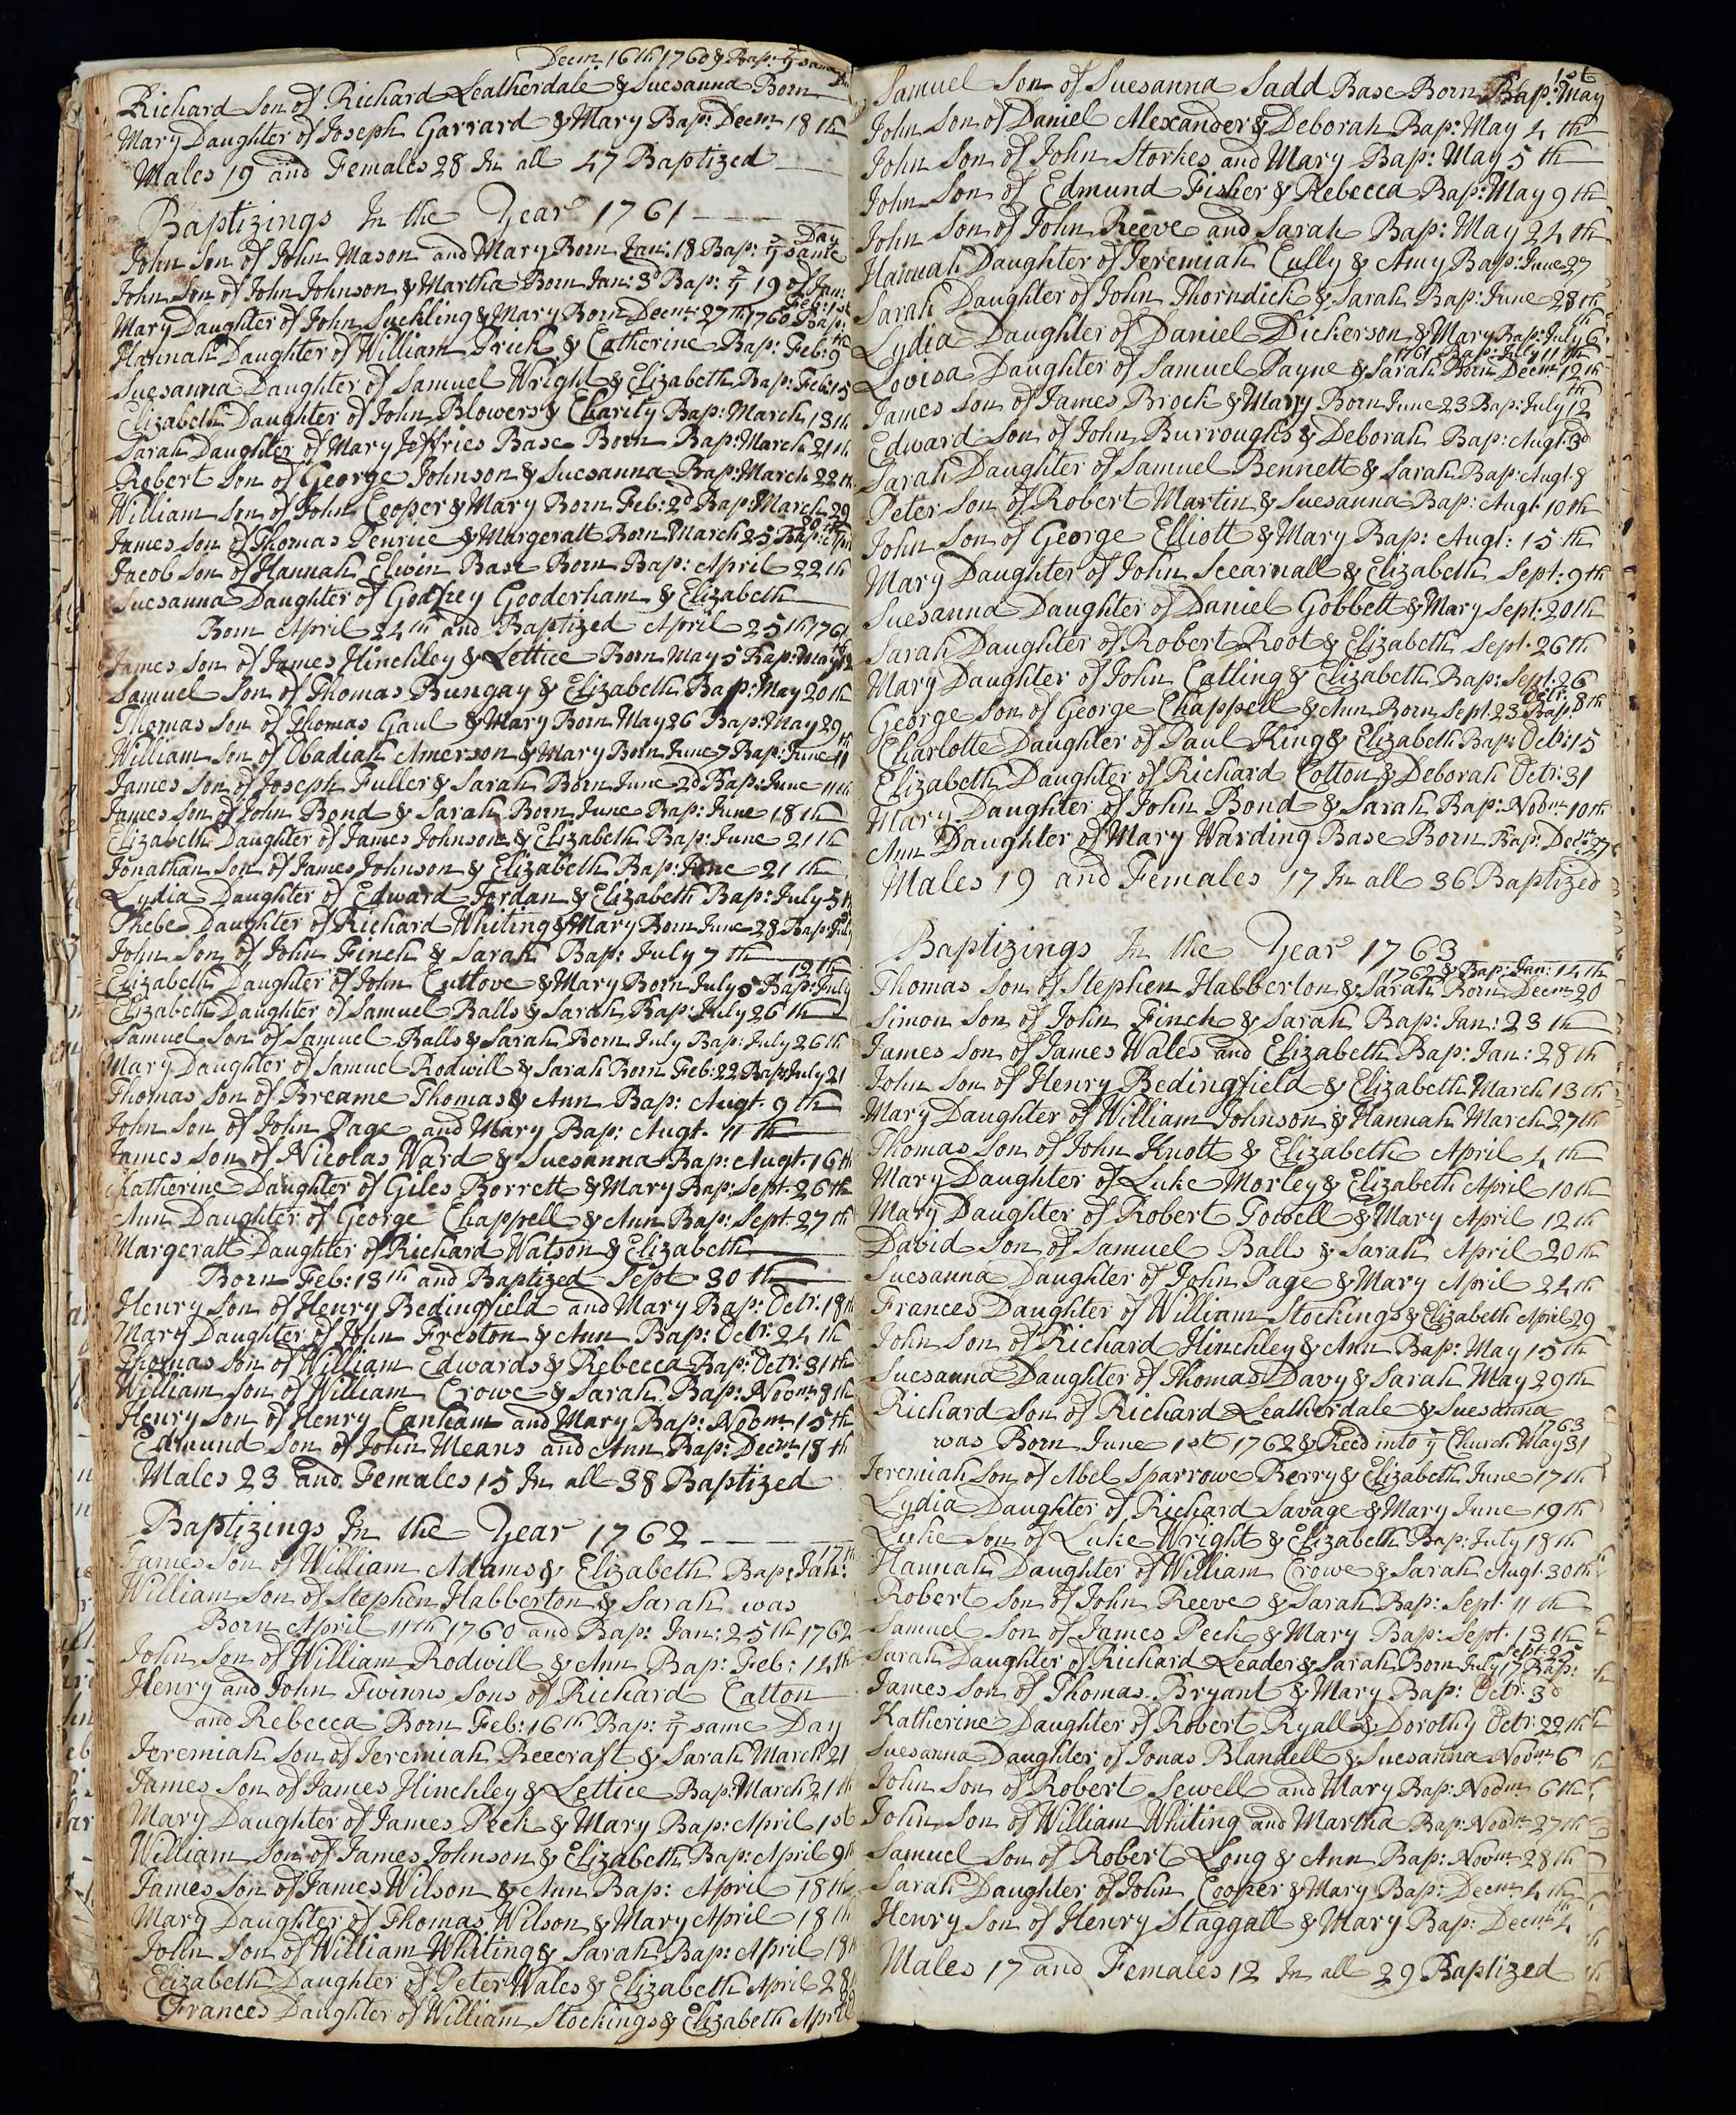 Decm. 16th 1760 & Bap: ye same
Richard Son of Richard Leatherdale & Suesanna Born
Mary Daughter of Joseph Garrard & Mary Bap: Decm. 18th
Males 19 and Females 28 In all 47 Baptized
Baptizings In the Year 1761
Day
John Son of John Mason and Mary Born Jan: 18 Bap: ye same
John Son of John Johnson & Martha Born Jan: 3d Bap: ye 19 of Jan:
Feb: 1st
Mary Daughter of John Suckling & Mary Born Decm. 27th 1760 Bap:
Hannah Daughter of William Prick & Catherine Bap: Feb: 9th
Suesanna Daughter of Samuel Wright & Elizabeth Bap: Feb: 15
Elizabeth Daughter of John Blowers & Charity Bap: March 13th
Sarah Daughter of Mary Jeffries Base Born Bap: March 21th
Robert Son of George Johnson & Suesanna Bap: March 22th
William Son of John Cooper & Mary Born Feb: 2d Bap: March 29
James Son of Thomas Penrice & Margeratt Born March 25 Bap:
Jacob Son of Hannah Elwin Base Born Bap: April 22th
Suesanna Daughter of Godfrey Gooderham & Elizabeth
Born April 24th and Baptized April 25th 1761
James Son of James Hinchley & Lettice Born May 5 Bap: May 12
Samuel Son of Thomas Bungay & Elizabeth Bap: May 20th
Thomas Son of Thomas Gaul & Mary Born May 26 Bap: May 29
William Son of Obadiah Amerson & Mary Born June 7 Bap: June 11th
James Son of Joseph Fuller & Sarah Born June 2d Bap: June 11th
James Son of John Bond & Sarah Born June Bap: June 18th
Elizabeth Daughter of James Johnson & Elizabeth Bap: June 21th
Jonathan Son of James Johnson & Elizabeth Bap: June 21th
Lydia Daughter of Edward Jordan & Elizabeth Bap: July 5th
Phebe Daughter of Richard Whiting & Mary Born June 28 Bap: July
John Son of John Finch & Sarah Bap: July 7th
12th
Elizabeth Daughter of John Cutlove & Mary Born July 5 Bap: July
Elizabeth Daughter of Samuel Balls & Sarah Bap: July 26th
Samuel Son of Samuel Balls & Sarah Born July Bap: July 26th
Mary Daughter of Samuel Rodwill & Sarah Born Feb: 22 Bap: July 21
Thomas Son of Breame Thomas & Ann Bap: Augt. 9th
John Son of John Page and Mary Bap: Augt. 11th
James Son of Nicolas Ward & Suesanna Bap: Augt. 16th
Katherine Daughter of Giles Borrett & Mary Bap: Sept. 26th
Ann Daughter of George Chappell & Ann Bap: Sept. 27th
Margeratt Daughter of Richard Watson & Elizabeth
Born Feb: 13th and Baptized Sept 30th
Henry Son of Henry Bedingfield and Mary Bap: Octr. 18th
Mary Daughter of John Freston & Ann Bap: Octr. 24th
Thomas Son of William Edwards & Rebecca Bap: Octr: 31th
William Son of William Crowe & Sarah Bap: Novm. 8th
Henry Son of Henry Canham and Mary Bap: Novm. 15th
Edmund Son of John Means and Ann Bap: Decm. 18th
Males 23 and Females 15 In all 38 Baptized
Baptizings In the Year 1762
17th
James Son of William Adams & Elizabeth Bap: Jan:
William Son of Stephen Habberton & Sarah was
Born April 11th 1760 and Bap: Jan: 25th 1762
John Son of William Rodwill & Ann Bap: Feb: 14th
Henry and John Twinns Sons of Richard Catton
and Rebecca Born Feb: 16th Bap: ye same Day
Jeremiah Son of Jeremiah Reecraft & Sarah March 21
James Son of James Hinchley & Lettice Bap: March 21th
Mary Daughter of James Peck & Mary Bap: April 1st
William Son of James Johnson & Elizabeth Bap: April 9th
James Son of James Wilson & Ann Bap: April 18th
Mary Daughter of Thomas Wilson & Mary April 18th
John Son of William Whiting & Sarah Bap: April 18th
Elizabeth Daughter of Peter Wales & Elizabeth April 28
Frances Daughter of William Stockings & Elizabeth April
1st
Samuel Son of Suesanna Sadd Base Born Bap: May
John Son of Daniel Alexander & Deborah Bap: May 4th
John Son of John Storkes and Mary Bap: May 5th
John Son of Edmund Fisher & Rebecca Bap: May 9th
John Son of John Reeve and Sarah Bap: May 24th
Hannah Daughter of Jeremiah Cully & Amy Bap: June 27
Sarah Daughter of John Thorndick & Sarah Bap: June 28th
Lydia Daughter of Daniel Dickerson & Mary Bap: July 6th
1761 Bap: July 11th
Lovisa Daughter of Samuel Payne & Sarah Born Decm. 12th
James Son of James Brock & Mary Born June 23 Bap: July 12th
Edward Son of John Burroughs & Deborah Bap: Augt. 3d
Sarah Daughter of Samuel Bennett & Sarah Bap: Augt. 8
Peter Son of Robert Martin & Suesanna Bap: Augt. 10th
John Son of George Elliott & Mary Bap: Augt: 15th
Mary Daughter of John Scearnall & Elizabeth Sept: 9th
Suesanna Daughter of Daniel Gobbett & Mary Sept: 20th
Sarah Daughter of Robert Root & Elizabeth Sept. 26th
Mary Daughter of John Catling & Elizabeth Bap: Sept: 26
Octr: 8th
George Son of George Chappell & Ann Born Sept. 23 Bap:
Charlotte Daughter of Paul King & Elizabeth Bap: Octr: 15
Elizabeth Daughter of Richard Cotton & Deborah Octr: 31
Mary Daughter of John Bond & Sarah Bap: Novm. 10th
Ann Daughter of Mary Warding Base Born Bap: Dec. 27th
Males 19 and Females 17 In all 36 Baptized
Baptizings In the Year 1763
1762 & Bap: Jan: 14th
Thomas Son of Stephen Habberton & Sarah Born Decm. 20
Simon Son of John Finch & Sarah Bap: Jan: 23th
James Son of James Wales and Elizabeth Bap: Jan: 28th
John Son of Henry Bedingfield & Elizabeth March 13th
Mary Daughter of William Johnson & Hannah March 27th
Thomas Son of John Knott & Elizabeth April 4th
Mary Daughter of Luke Morley & Elizabeth April 10th
Mary Daughter of Robert Gowell & Mary April 12th
David Son of Samuel Balls & Sarah April 20th
Suesanna Daughter of John Page & Mary April 24th
Frances Daughter of William Stockings & Elizabeth April 29
John Son of Richard Hinchley & Ann Bap: May 15th
Suesanna Daughter of Thomas Davy & Sarah May 29th
Richard Son of Richard Leatherdale & Suesanna
1763
was Born June 1st 1762 & Reed into ye Church May 31
Jeremiah Son of Abel Sparrowe Berry & Elizabeth June 17th
Lydia Daughter of Richard Savage & Mary June 19th
Luke Son of Luke Wright & Elizabeth Bap: July 18th
Hannah Daughter of William Crowe & Sarah Augt. 30th
Robert Son of John Reeve & Sarah Bap: Sept. 11th
Samuel Son of James Peck & Mary Bap: Sept. 13th
Sept. 25
Sarah Daughter of Richard Leader & Sarah Born July 17 Bap:
James Son of Thomas Bryant & Mary Bap: Octr: 3d
Katherine Daughter of Robert Ryall & Dorothy Octr: 22th
Suesanna Daughter of Jonas Blandell & Suesanna Novm. 6
John Son of Robert Sewell and Mary Bap: Novm. 6th
John Son of William Whiting and Martha Bap: Novm. 27th
Samuel Son of Robert Long & Ann Bap: Novm. 28th
Sarah Daughter of John Cooper & Mary Bap: Decm. 4th
Henry Son of Henry Staggall & Mary Bap: Decm. 4th
Males 17 and Females 12 In all 29 Baptized